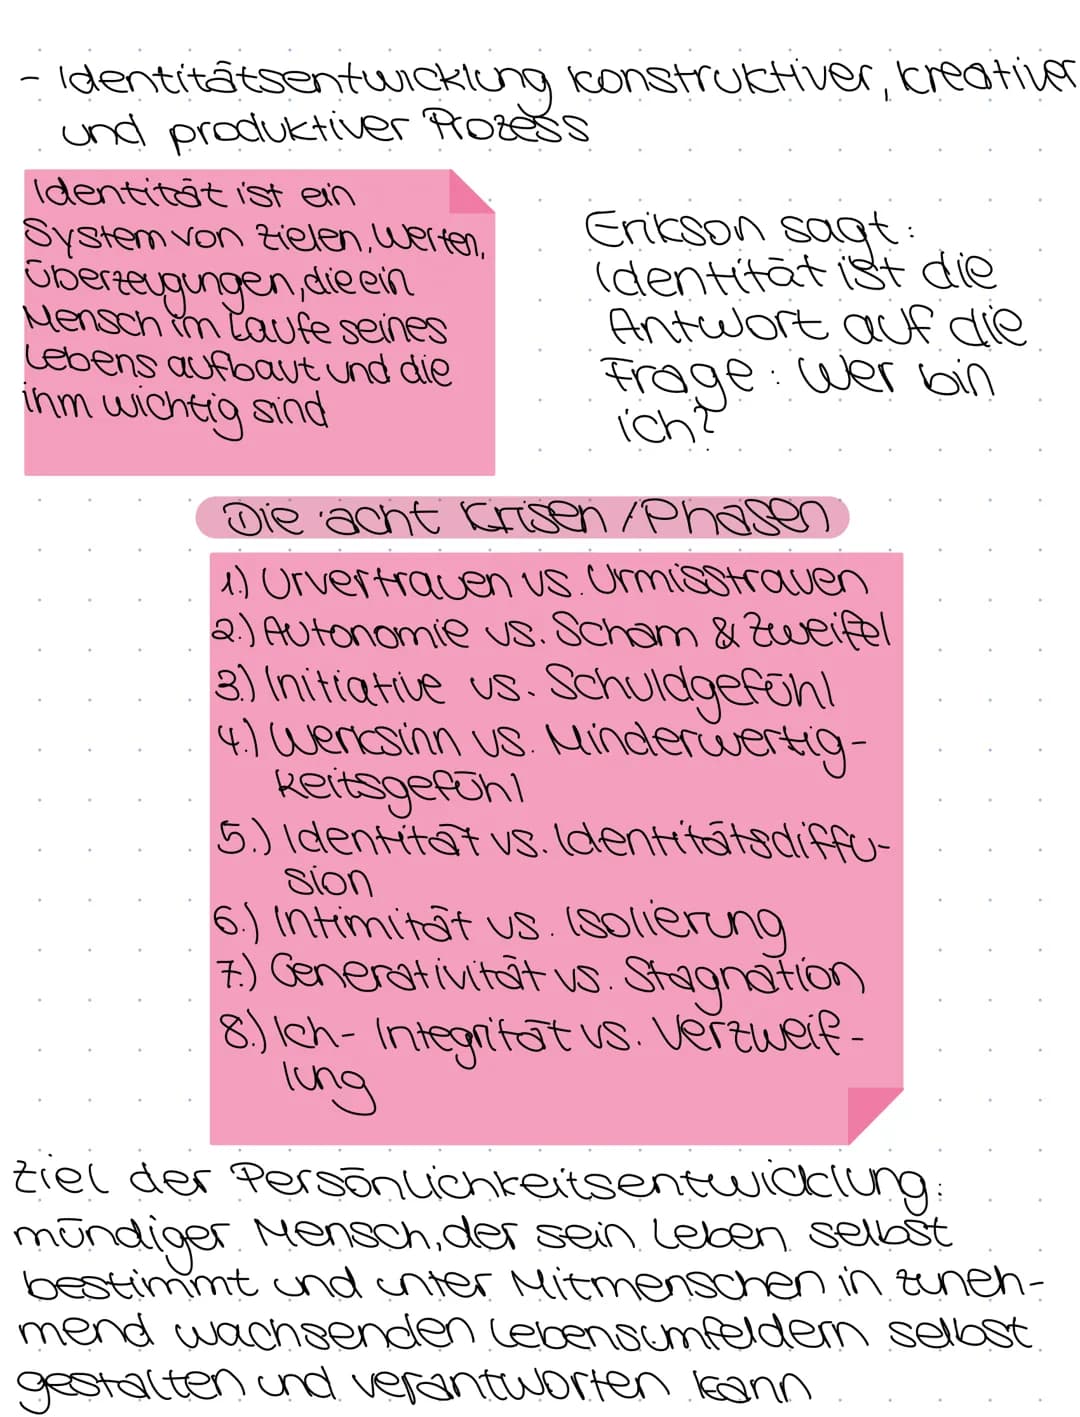 - Identitätsentwicklung konstruktiver, kreativer
und produktiver Prozess
Identität ist ein
System von Zielen, Werten,
Überzeugungen, die ein
Mensch im Laufe seines
Lebens aufbaut und die
ihm wichtig sind
Erikson sagt:
Identität ist die
Antwort auf die
Frage: Wer bin
ich?
Die acht Krisen / Phasen
1.) Urvertrauen vs. Urmisstrauen
2.) Autonomie vs. Scham & Zweifel
3.) Initiative vs. Schuldgefühl
4.) Werksinn vs. Minderwertig-
keitsgefühl
5.) Identität vs. Identitätsdiffu-
sion
6.) Intimität vs. Isolierung
7.) Generativität vs. Stagnation
8.) Ich- Integrität vs. Verzweif-
lung
Ziel der Persönlichkeitsentwicklung:
mündiger Mensch, der sein Leben selbst
bestimmt und unter Mitmenschen in zuneh-
mend wachsenden Lebensumfeldern selbst
gestalten und verantworten kann